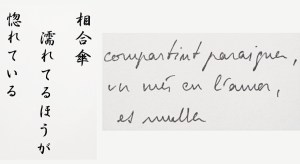 相合傘
濡れてるほうが
惚れている
compartint paraigua,
un més en l'amor,
es mulla